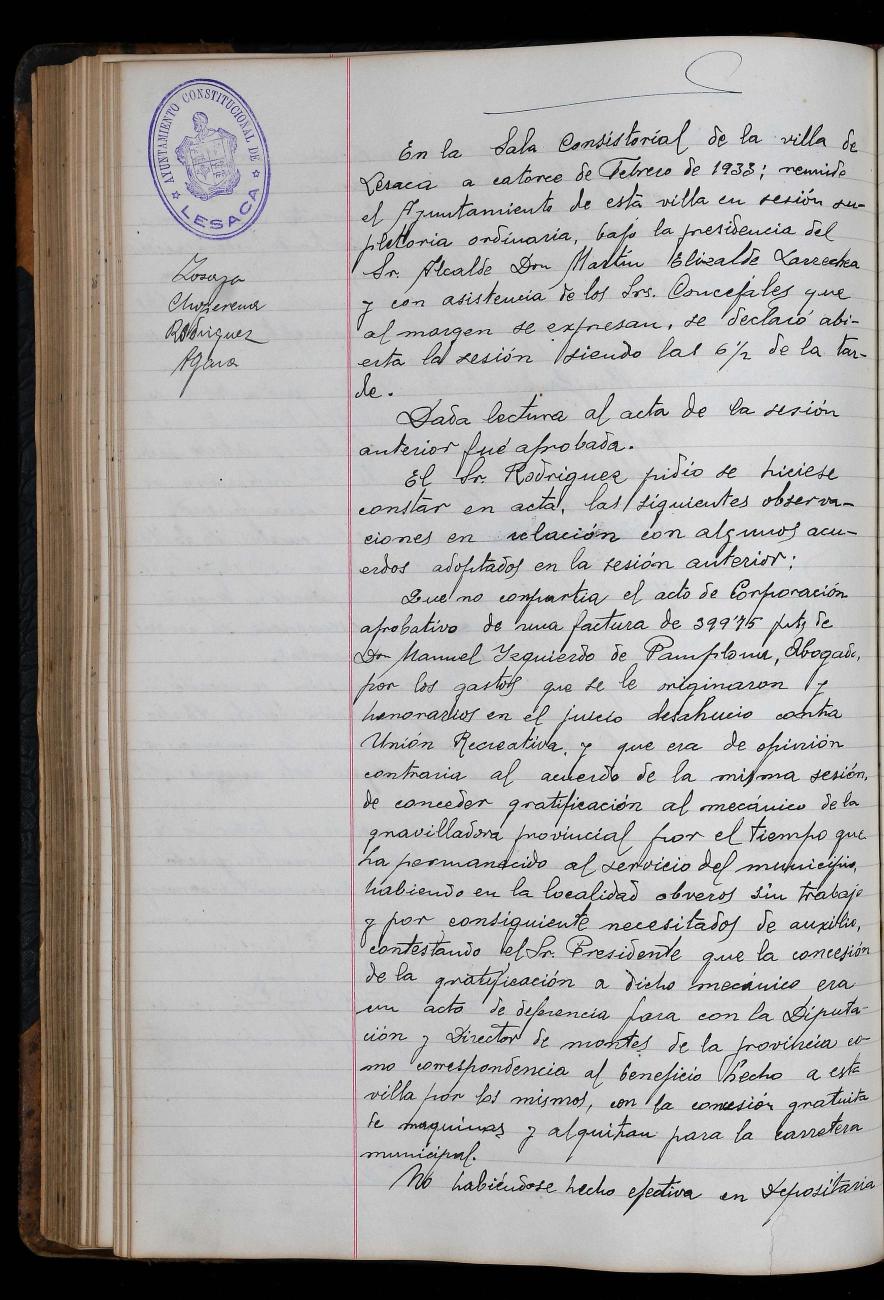 AYUNTAMIENTO CONSTITUCIONAL DE
LESACA
Zosaya
Choperena
Rodriguez
Agara
En la Sala Consistorial de la villa de
Lesaca a catorce de Febrero de 1933; reunido
el Ayuntamiento de esta villa en sesión su-
pletoria ordinaria, bajo la presidencia del
Sr. Alcalde Don Martín Elizalde Larrechea
y con asistencia de los Srs. Concejales que
al margen se expresan, se declaró abi-
erta la sesión siendo las 6½ de la tar-
de.
Dada lectura al acta de la sesión
anterior fué aprobada.
El Sr. Rodriguez pidió se hiciese
constar en acta, las siguientes observa-
ciones en relación con algunos acu-
erdos adoptados en la sesión anterior;
Que no compartia el acto de Corporación
aprobativo de una factura de 399'75 pts de
Dn Manuel Yzquierdo de Pamplona, Abogado,
por los gastos que se le originaron y
honorarios en el juicio desahucio contra
Unión Recreativa, y que era de opinión
contraria al acuerdo de la misma sesión,
de conceder gratificación al mecánico de la
gravilladora provincial por el tiempo que
ha permanecido al servicio del municipio,
habiendo en la localidad obreros sin trabajo
y por consiguiente necesitados de auxilio,
contestando el Sr. Presidente que la concesión
de la gratificación a dicho mecánico era
un acto de deferencia para con la Diputa-
ción y Director de montes de la provincia co-
mo correspondencia al beneficio hecho a esta
villa por los mismos, con la concesión gratuita
de maquinas y alquitran para la carretera
municipal.
No habiéndose hecho efectiva en Depositaria